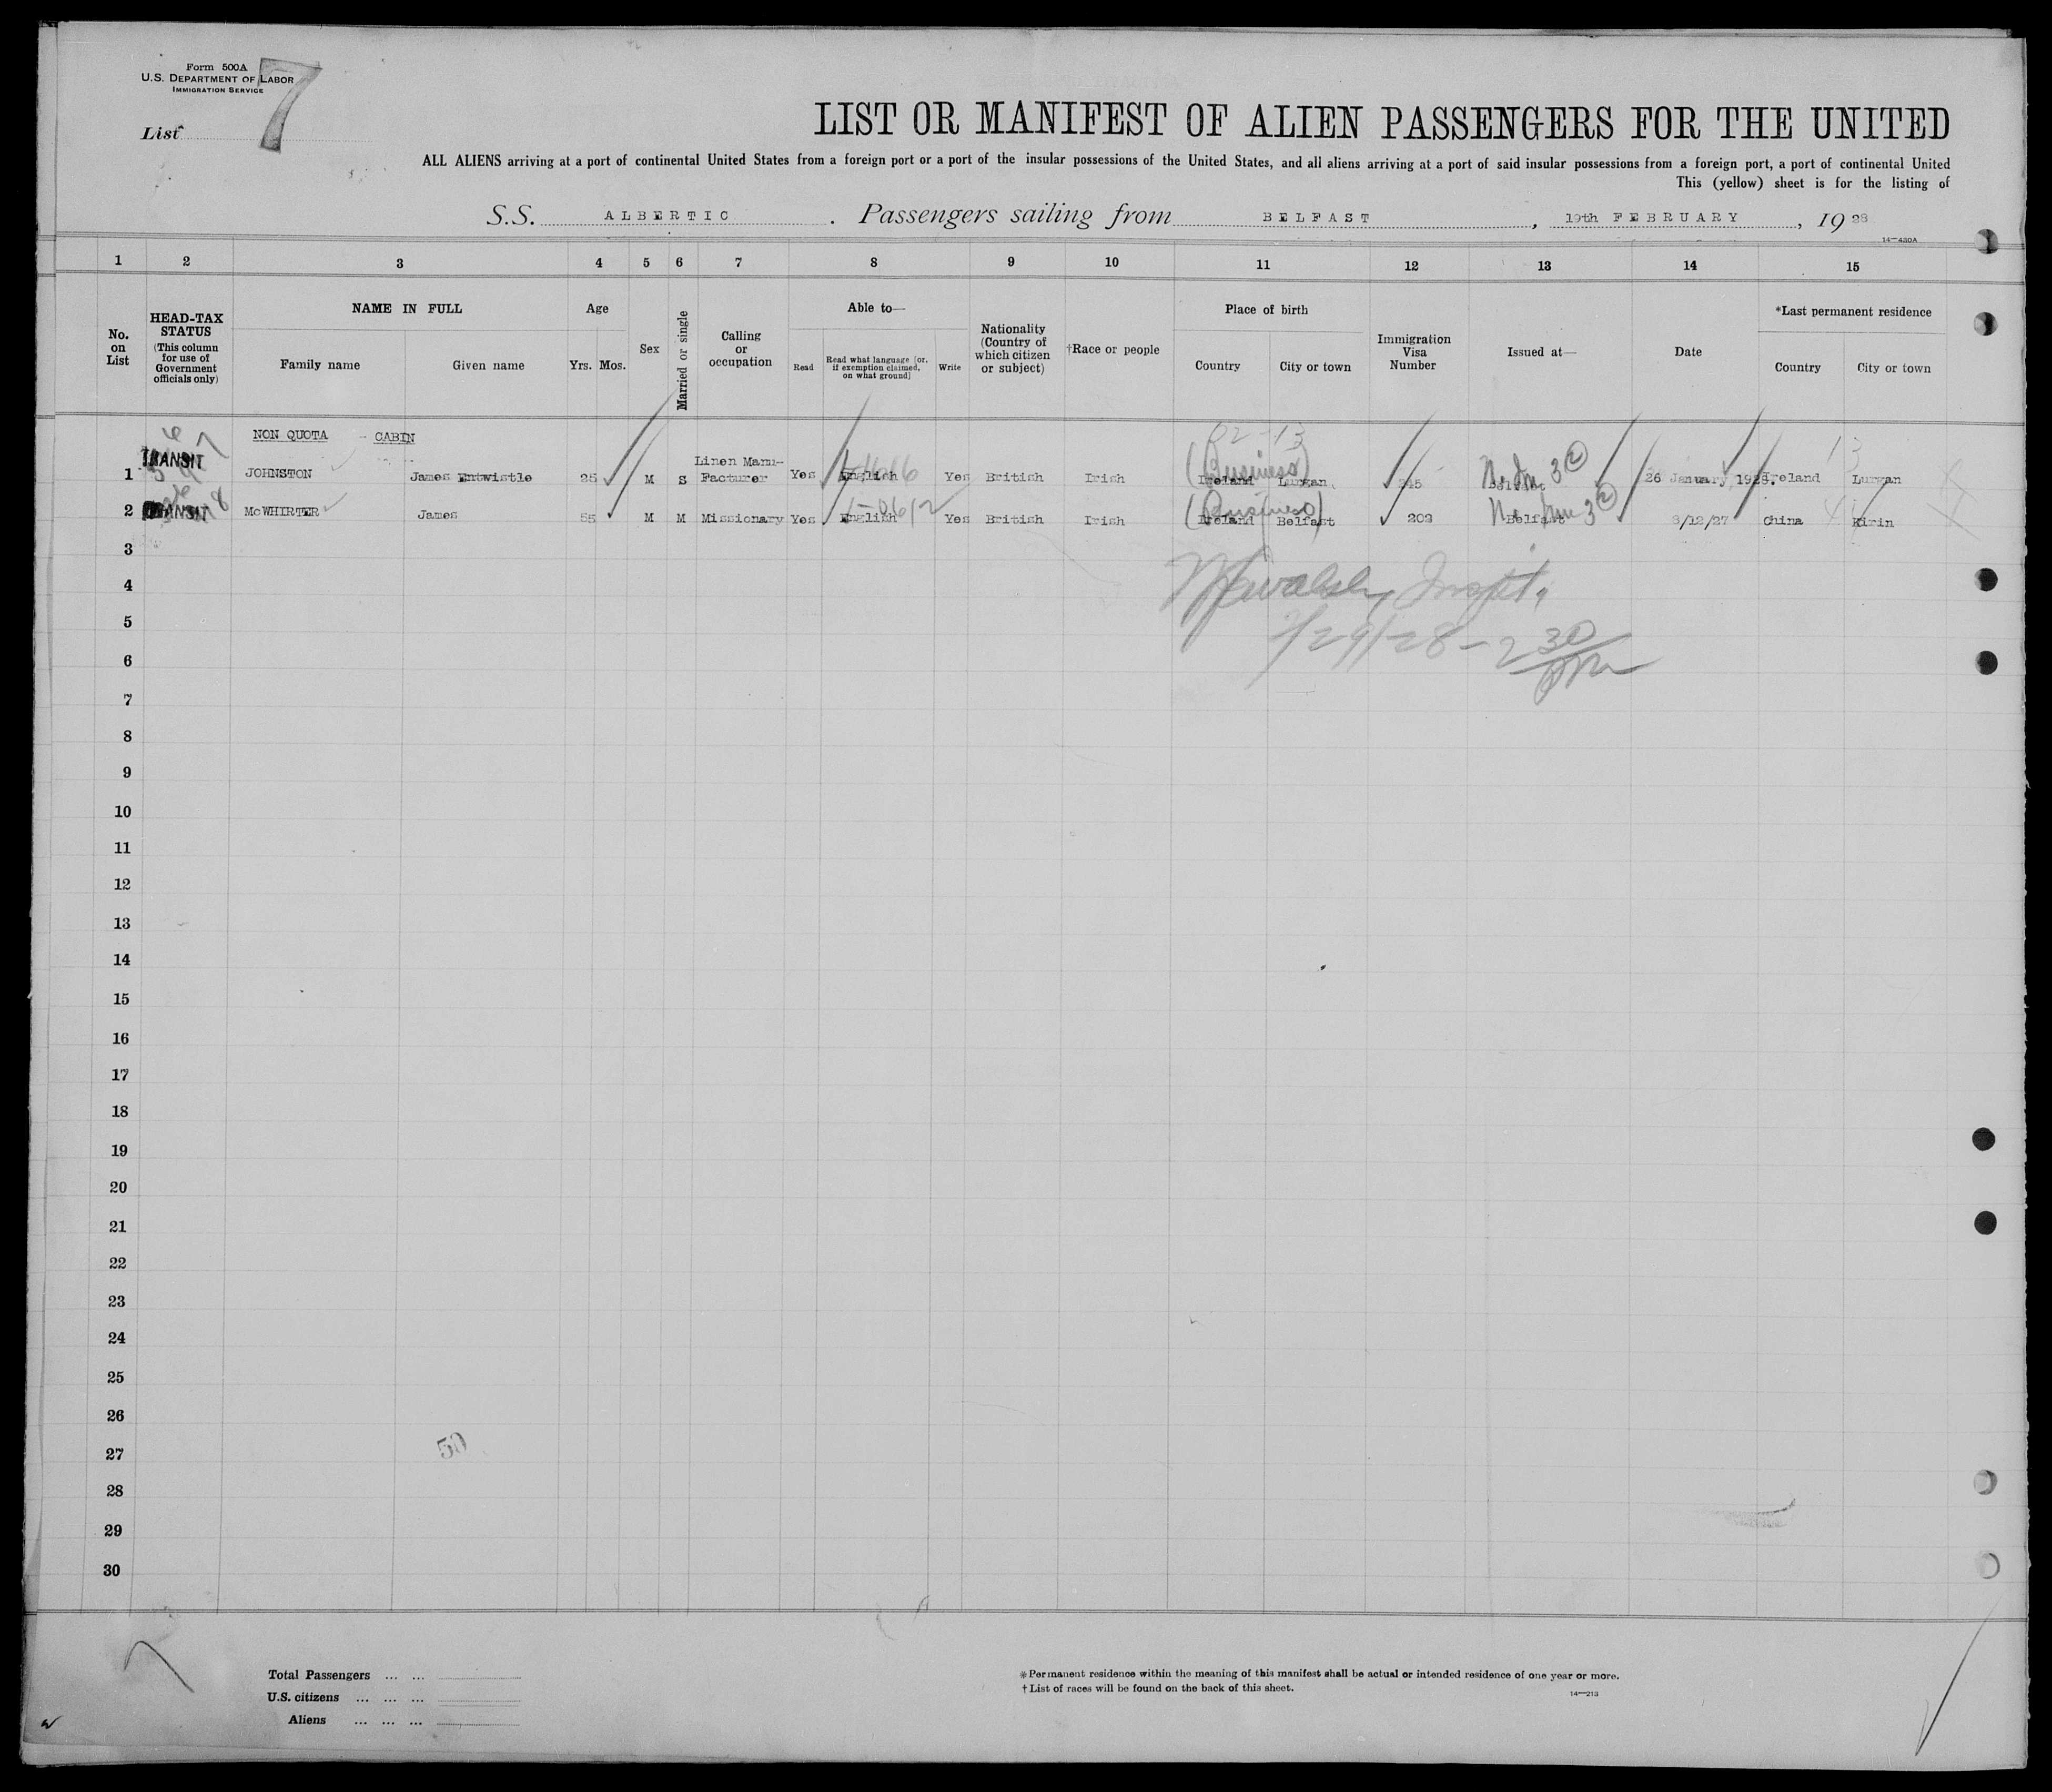 Form 500A
U.S. DEPARTMENT OF LABOR
IMMIGRATION SERVICE
List 7
LIST OR MANIFEST OF ALIEN PASSENGERS FOR THE UNITED
ALL ALIENS arriving at a port of continental United States from a foreign port or a port of the insular possessions of the United States, and all aliens arriving at a port of said insular possessions from a foreign port, a port of continental United
This (yellow) sheet is for the listing of
S.S. ALBERTIC. Passengers sailing from BELFAST, 19th FEBRUARY, 1928
14—430A
1 2 3 4 5 6 7 8 9 10 11 12 13 14 15
No. on List
HEAD-TAX STATUS (This column for use of Government officials only)
NAME IN FULL
Family name
Given name
Age
Yrs. Mos.
Sex
Married or single
Calling or occupation
Able to—
Read
Read what language [or, if exemption claimed, on what ground]
Write
Nationality (Country of which citizen or subject)
†Race or people
Place of birth
Country
City or town
Immigration Visa Number
Issued at—
Date
*Last permanent residence
Country
City or town
NON QUOTA - CABIN
02-13
1 TRANSIT JOHNSTON James Entwistle 25 M S Linen Manu-Facturer Yes English Yes British Irish (Business) Ireland Lurgan 26 January 1928. Ireland Lurgan
2 TRANSIT McWHIRTER James 55 M M Missionary Yes English Yes British Irish (Business) Ireland Belfast 203 Belfast 8/12/27 China Kirin
3
4
Inspt.
5
2/29/28 - 2 30 PM
6
7
8
9
10
11
12
13
14
15
16
17
18
19
20
21
22
23
24
25
26
27
50
28
29
30
Total Passengers ... ...
U.S. citizens ... ... ...
Aliens ... ... ...
*Permanent residence within the meaning of this manifest shall be actual or intended residence of one year or more.
†List of races will be found on the back of this sheet.
14—213